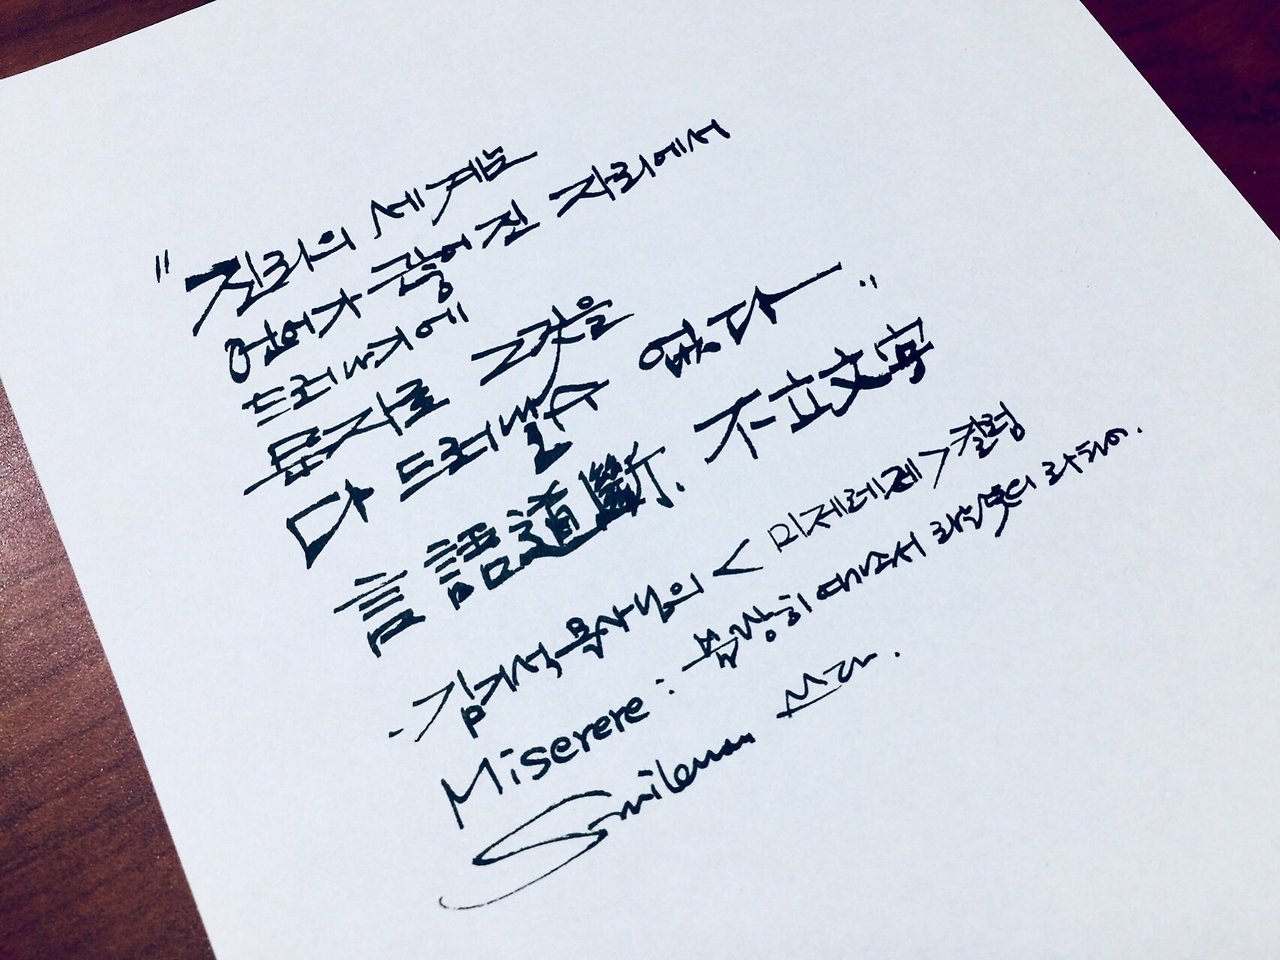 "진리의 세계는
언어가 끊어진 자리에서
드러나기에
문자로 그것을
다 드러낼 수 없다"
言語道斷, 不立文字
- 김기석 목사님의 <미제레레> 칼럼
Miserere : 불쌍히 여기소서 라는 뜻의 라틴어.
Smileman